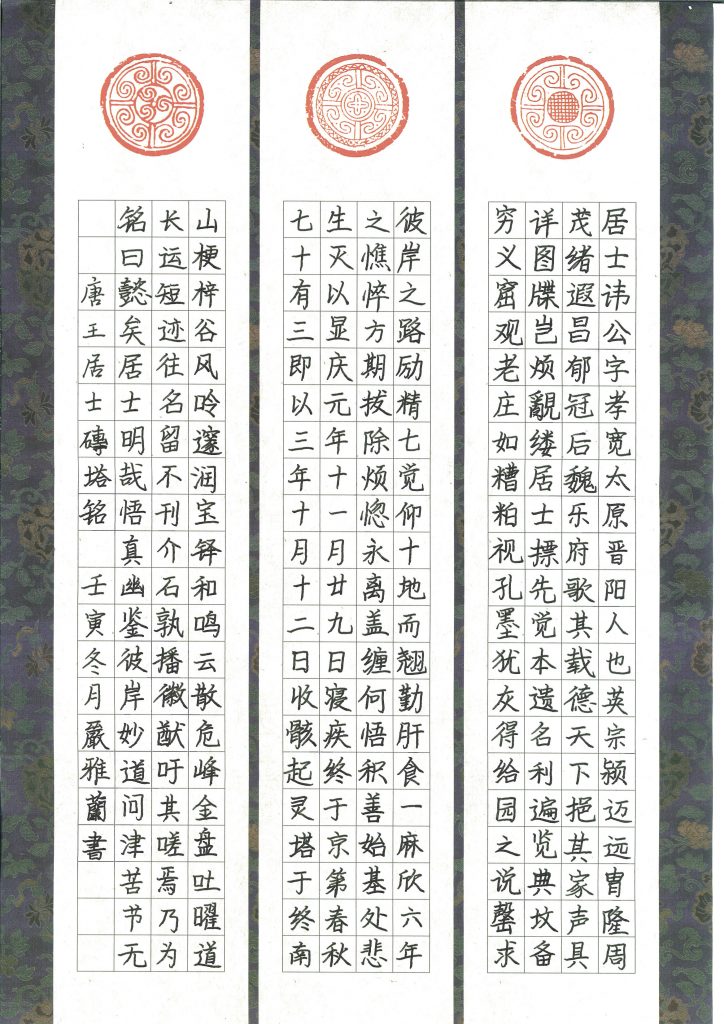 居士讳公字孝宽太原晋阳人也英宗颍迈远胄隆周
茂绪遐昌郁冠后魏乐府歌其载德天下挹其家声具
详图牒岂烦覼缕居士摽先觉本遗名利遍览典坟备
穷义窟观老庄如糟粕视孔墨犹灰得给园之说罄求
彼岸之路励精七觉仰十地而翘勤肝食一麻欣六年
之憔悴方期拔除烦惚永离盖缠何悟积善始基处悲
生灭以显庆元年十一月廿九日寝疾终于京第春秋
七十有三即以三年十月十二日收骸起灵塔于终南
山梗梓谷风吟邃润宝铎和鸣云散危峰金盘吐曜道
长运短迹往名留不刊介石孰播徽猷吁其嗟焉乃为
铭曰懿矣居士明哉悟真幽鉴彼岸妙道问津苦节无
唐王居士磚塔铭 壬寅冬月嚴雅蘭書